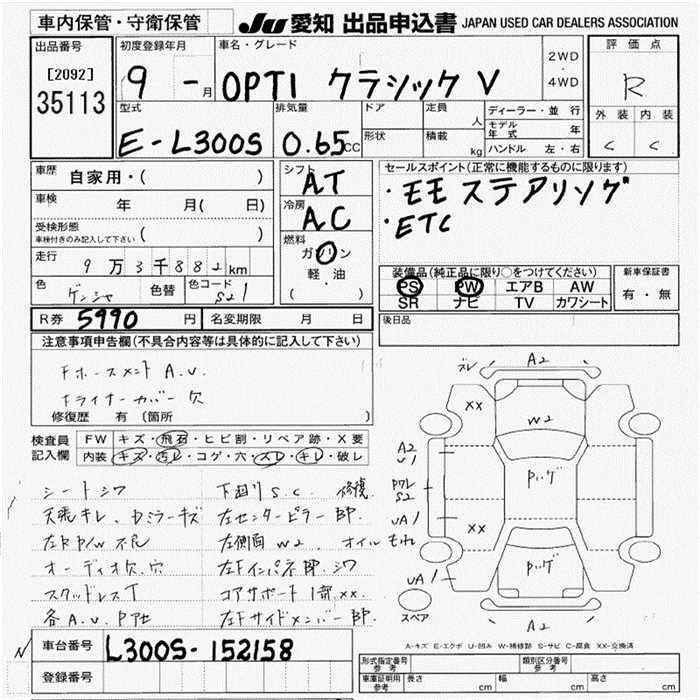 車内保管・守衛保管
JU 愛知 出品申込書 JAPAN USED CAR DEALERS ASSOCIATION
出品番号
[2092]
35113
初度登録年月
9 - 月
車名・グレード
OPTI クラシック V
2WD
・
4WD
評価点
R
外装 内装
C C
型式
E-L300S
排気量
0.65 CC
ドア
形状
定員 人
積載 kg
ディーラー・並行
モデル年式 年
ハンドル 左・右
車歴
自家用・( )
車検 年 月( 日)
受検形態
車検付きのみ記入して下さい ( )
走行
9万3千882km
色
色替
色コード
S21
シフト
AT
冷房
AC
燃料
ガソリン
軽・油
( )
セールスポイント(正常に機能するものに限ります)
・モモステアリング
・ETC
装備品(純正品に限り○をつけてください)
PS PW エアB AW
SR ナビ TV カワシート
新車保証書
有・無
後日品
R券 5990 円
名変期限 月 日
注意事項申告欄(不具合内容等は具体的に記入して下さい)
FホースメントA.U.
Fライナーカバー欠
修復歴 有(箇所 )
検査員
記入欄
FW キズ・飛石・ヒビ割・リペア跡・X要
内装 キズ・汚レ・コゲ・穴・スレ・キレ・破レ
シートシワ
天張キレ、Dミラーキズ
左R P/W不良
オーディオ欠.穴
スタッドレスT
各A.U.
下廻りS.C. 修復
左センターピラーBP.
左側面W2. オイルもれ
左FインパネBP.シワ
コアサポート1部.XX.
左FサイドメンバーBP.
A2
XX
W2
A2
U1
S2
UA1
XX
UA1
A2
スペア
A-キズ E-エクボ U-凹み W-補修跡 S-サビ C-腐食 XX-交換済
車台番号
L300S-152158
登録番号
形式指定番号
参考
類別区分番号
参考
車庫証明用
参考
長さ cm
幅 cm
高さ cm